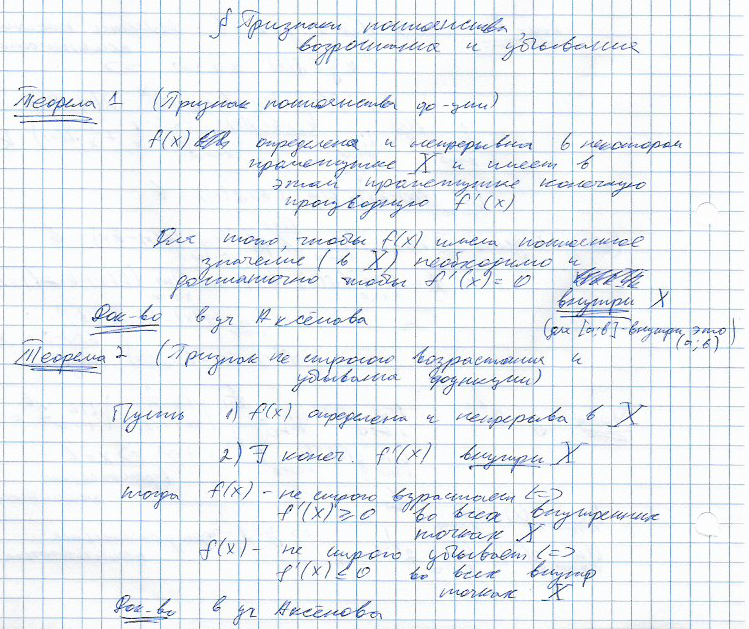 § Признаки постоянства,
возрастания и убывания
Теорема 1 (Признак постоянства фо-ции)
f(x) определена и непрерывна в некотором
промежутке X и имеет в
этом промежутке конечную
производную f'(x)
Для того, чтобы f(x) имела постоянное
значение (в X) необходимо и
достаточно чтобы f'(x) = 0
внутри X
(для [a;b] - внутри, это
(a;b))
Док-во в уч Аксёнова
Теорема 2 (Признак не строгого возрастания и
убывания функции)
Пусть 1) f(x) определена и непрерыва в X
2) ∃ конеч. f'(x) внутри X
тогда f(x) - не строго взрастает <=>
f'(x) ≥ 0 во всех внутренних
точках X
f(x) - не строго убывает <=>
f'(x) ≤ 0 во всех внутр
точках X
Док-во в уч Аксёнова